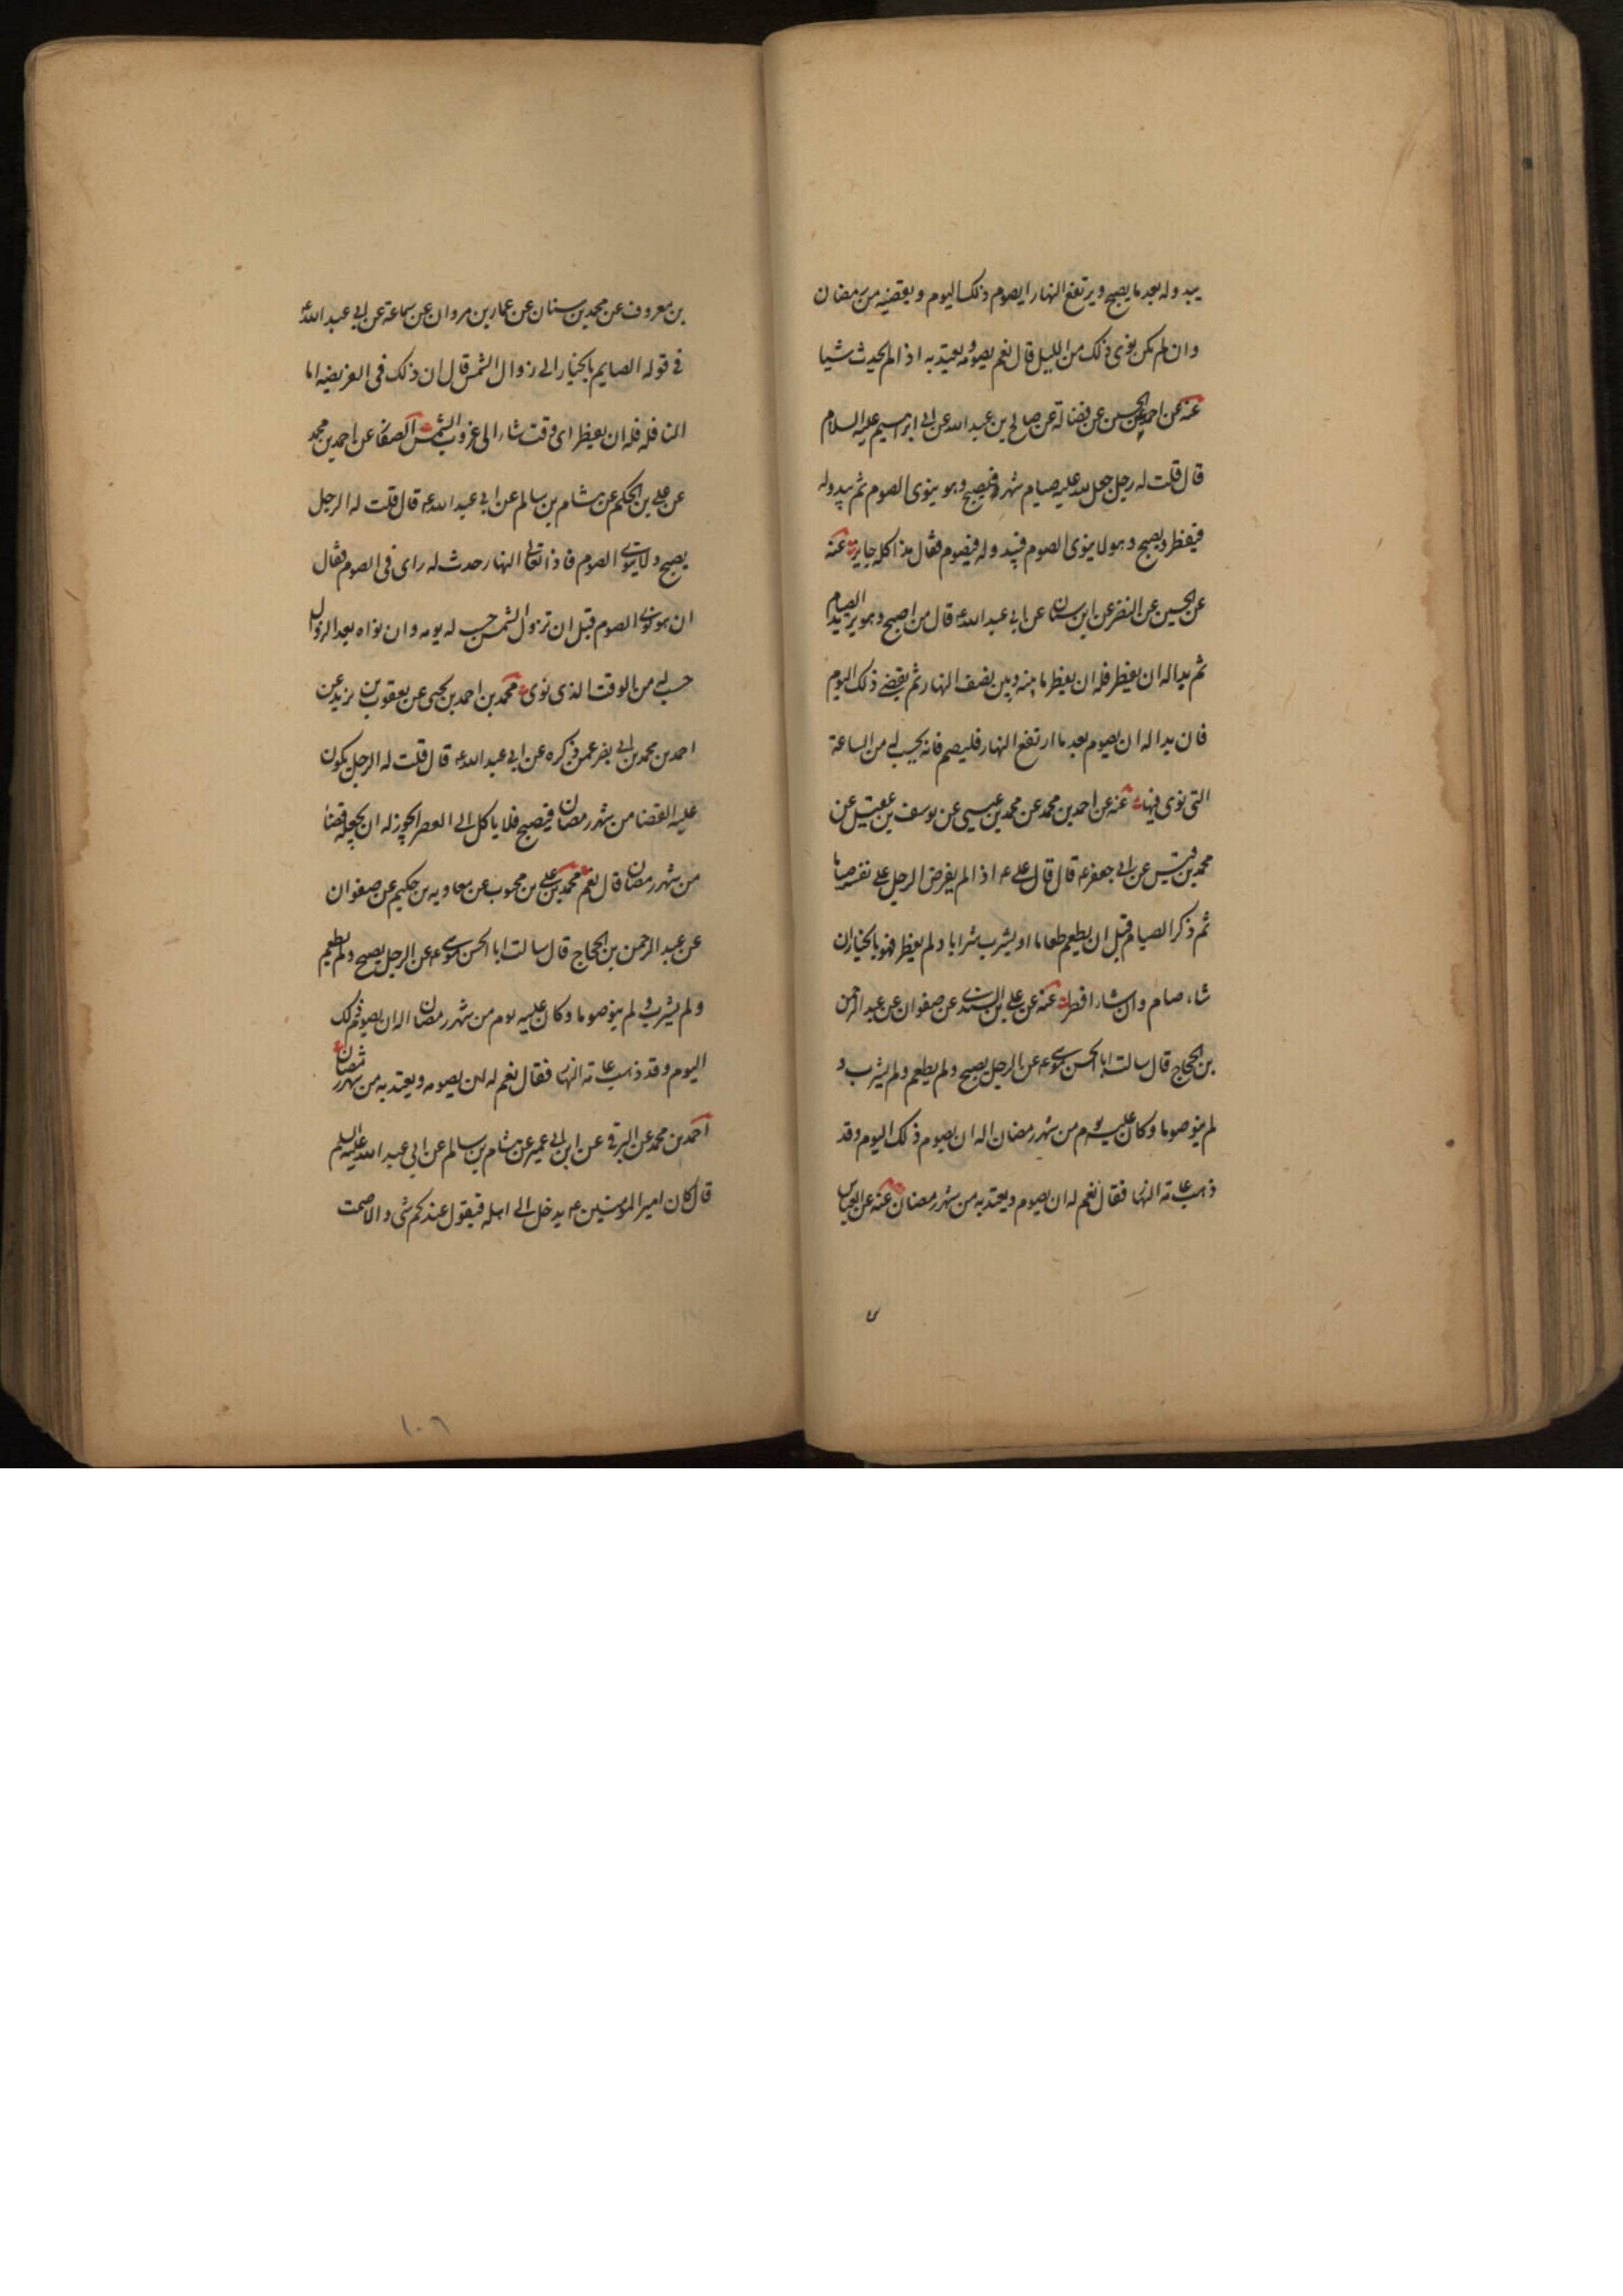 يبدو له بعد ما يصبح ويرتفع النهار ايصوم ذلك اليوم ويقضيه من رمضان
وان لم يكن نوى ذلك من الليل قال نعم يصومه ويعتد به اذا لم يحدث شيا
عنه عن احمد عن الحسين عن فضالة عن صالح بن عبد الله عن ابى ابرهيم عليه السلام
قال قلت له رجل جعل لله عليه صيام شهر فيصبح وهو ينوى الصوم ثم يبدو له
فيفطر ويصبح وهو لا ينوى الصوم فيبدو له فيصوم فقال هذا كله جايز عنه
عن الحسين عن النضر عن ابن سنان عن ابى عبد الله ع قال من اصبح وهو يريد الصيام
ثم بدا له ان يفطر فله ان يفطر ما بينه وبين نصف النهار ثم يقضى ذلك اليوم
فان بدا له ان يصوم بعد ما ارتفع النهار فليصم فانه يحسب له من الساعة
التى نوى فيها عنه عن احمد بن محمد عن محمد بن عيسى عن يوسف بن عقيل عن
محمد بن قيس عن ابى جعفر ع قال قال على ع اذا لم يفرض الرجل على نفسه صياما
ثم ذكر الصيام قبل ان يطعم طعاما او يشرب شرابا ولم يفطر فهو بالخيار ان
شاء صام وان شاء افطر عنه عن على بن السندى عن صفوان عن عبد الرحمن
بن الحجاج قال سالت ابا الحسن موسى ع عن الرجل يصبح ولم يطعم ولم يشرب و
لم ينو صوما وكان عليه يوم من شهر رمضان اله ان يصوم ذلك اليوم وقد
ذهب عامة النهار فقال نعم له ان يصوم ويعتد به من شهر رمضان عنه عن العباس
بن معروف عن محمد بن سنان عن عمار بن مروان عن سماعة عن ابى عبد الله ع
فى قوله الصايم بالخيار الى زوال الشمس قال ان ذلك فى الفريضه اما
النافله فله ان يفطر اى وقت شاء الى غروب الشمس الصفار عن احمد بن محمد
عن على بن الحكم عن هشام بن سالم عن ابى عبد الله ع قال قلت له الرجل
يصبح ولا ينوى الصوم فاذا تعالى النهار حدث له راى فى الصوم فقال
ان هو نوى الصوم قبل ان تزول الشمس حسب له يومه وان نواه بعد الزوال
حسب له من الوقت الذى نوى محمد بن احمد بن يحيى عن يعقوب بن يزيد عن
احمد بن محمد بن ابى نصر عمن ذكره عن ابى عبد الله ع قال قلت له الرجل يكون
عليه القضا من شهر رمضان فيصبح فلا ياكل الى العصر ايجوز له ان يجعله قضا
من شهر رمضان قال نعم محمد بن على بن محبوب عن معاويه بن حكيم عن صفوان
عن عبد الرحمن بن الحجاج قال سالت ابا الحسن موسى ع عن الرجل يصبح ولم يطعم
ولم يشرب ولم ينو صوما وكان عليه يوم من شهر رمضان اله ان يصوم ذلك
اليوم وقد ذهب عامة النهار فقال نعم له ان يصومه ويعتد به من شهر رمضان
احمد بن محمد عن البرقى عن ابن ابى عمير عن هشام بن سالم عن ابى عبد الله عليه السلم
قال كان امير المومنين ع يدخل الى اهله فيقول عندكم شى والا صمت
١٠٦